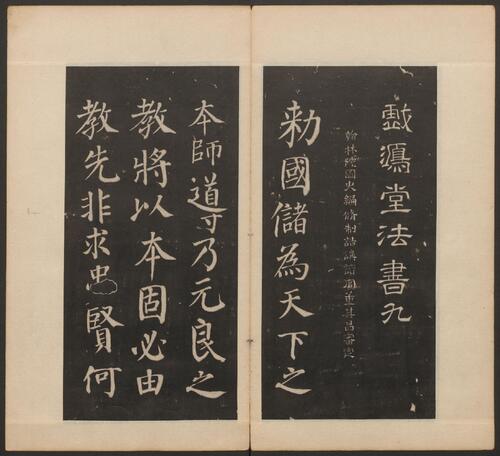 戲鴻堂法書九
翰林院國史編修制誥講讀官董其昌審定
勑國儲為天下之
本師導乃元良之
教將以本固必由
教先非求忠賢何